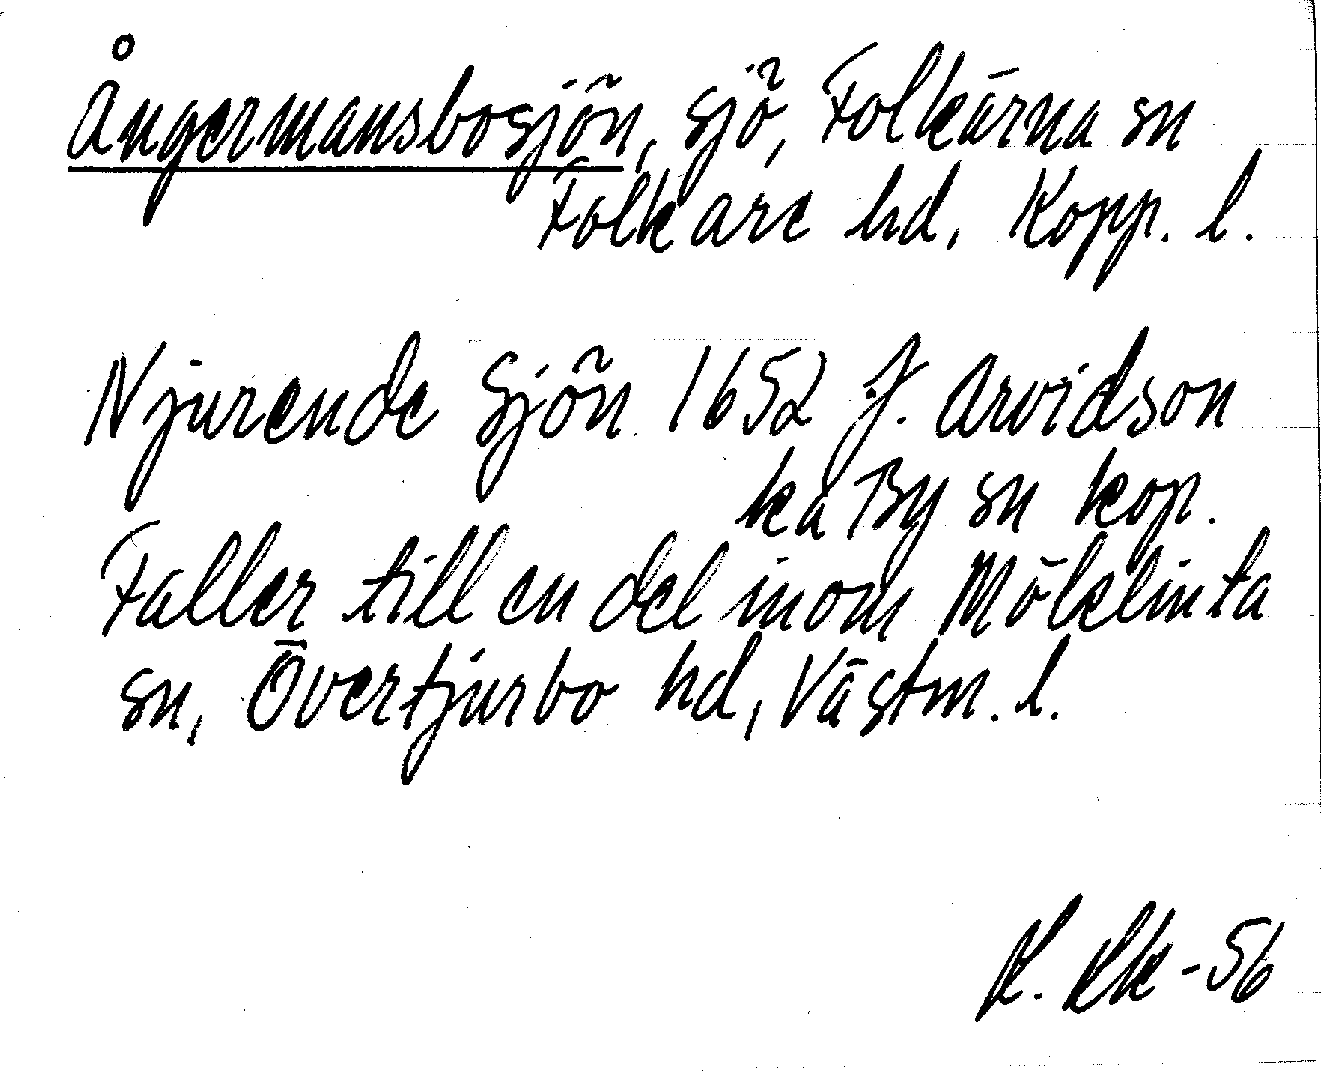 Ångermansbosjön, sjö, Folkärna sn
Folkare hd, Kopp. l.
Njurende Sjön 1652 J. Arvidson
ka By sn kop.
Faller till en del inom Möklinta
sn, Övertjurbo hd, Västm. l.
-56